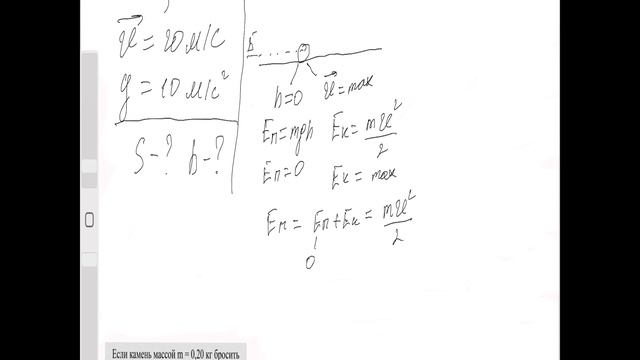 𝓋⃗ = 20 м/с
g = 10 м/с²
S - ? h - ?
h = 0 𝓋⃗ = max
Eп = mgh Eк = m𝓋²/2
Eп = 0 Eк = max
Eп + Eк = m𝓋²/2
0
Если камень массой m = 0,20 кг бросить